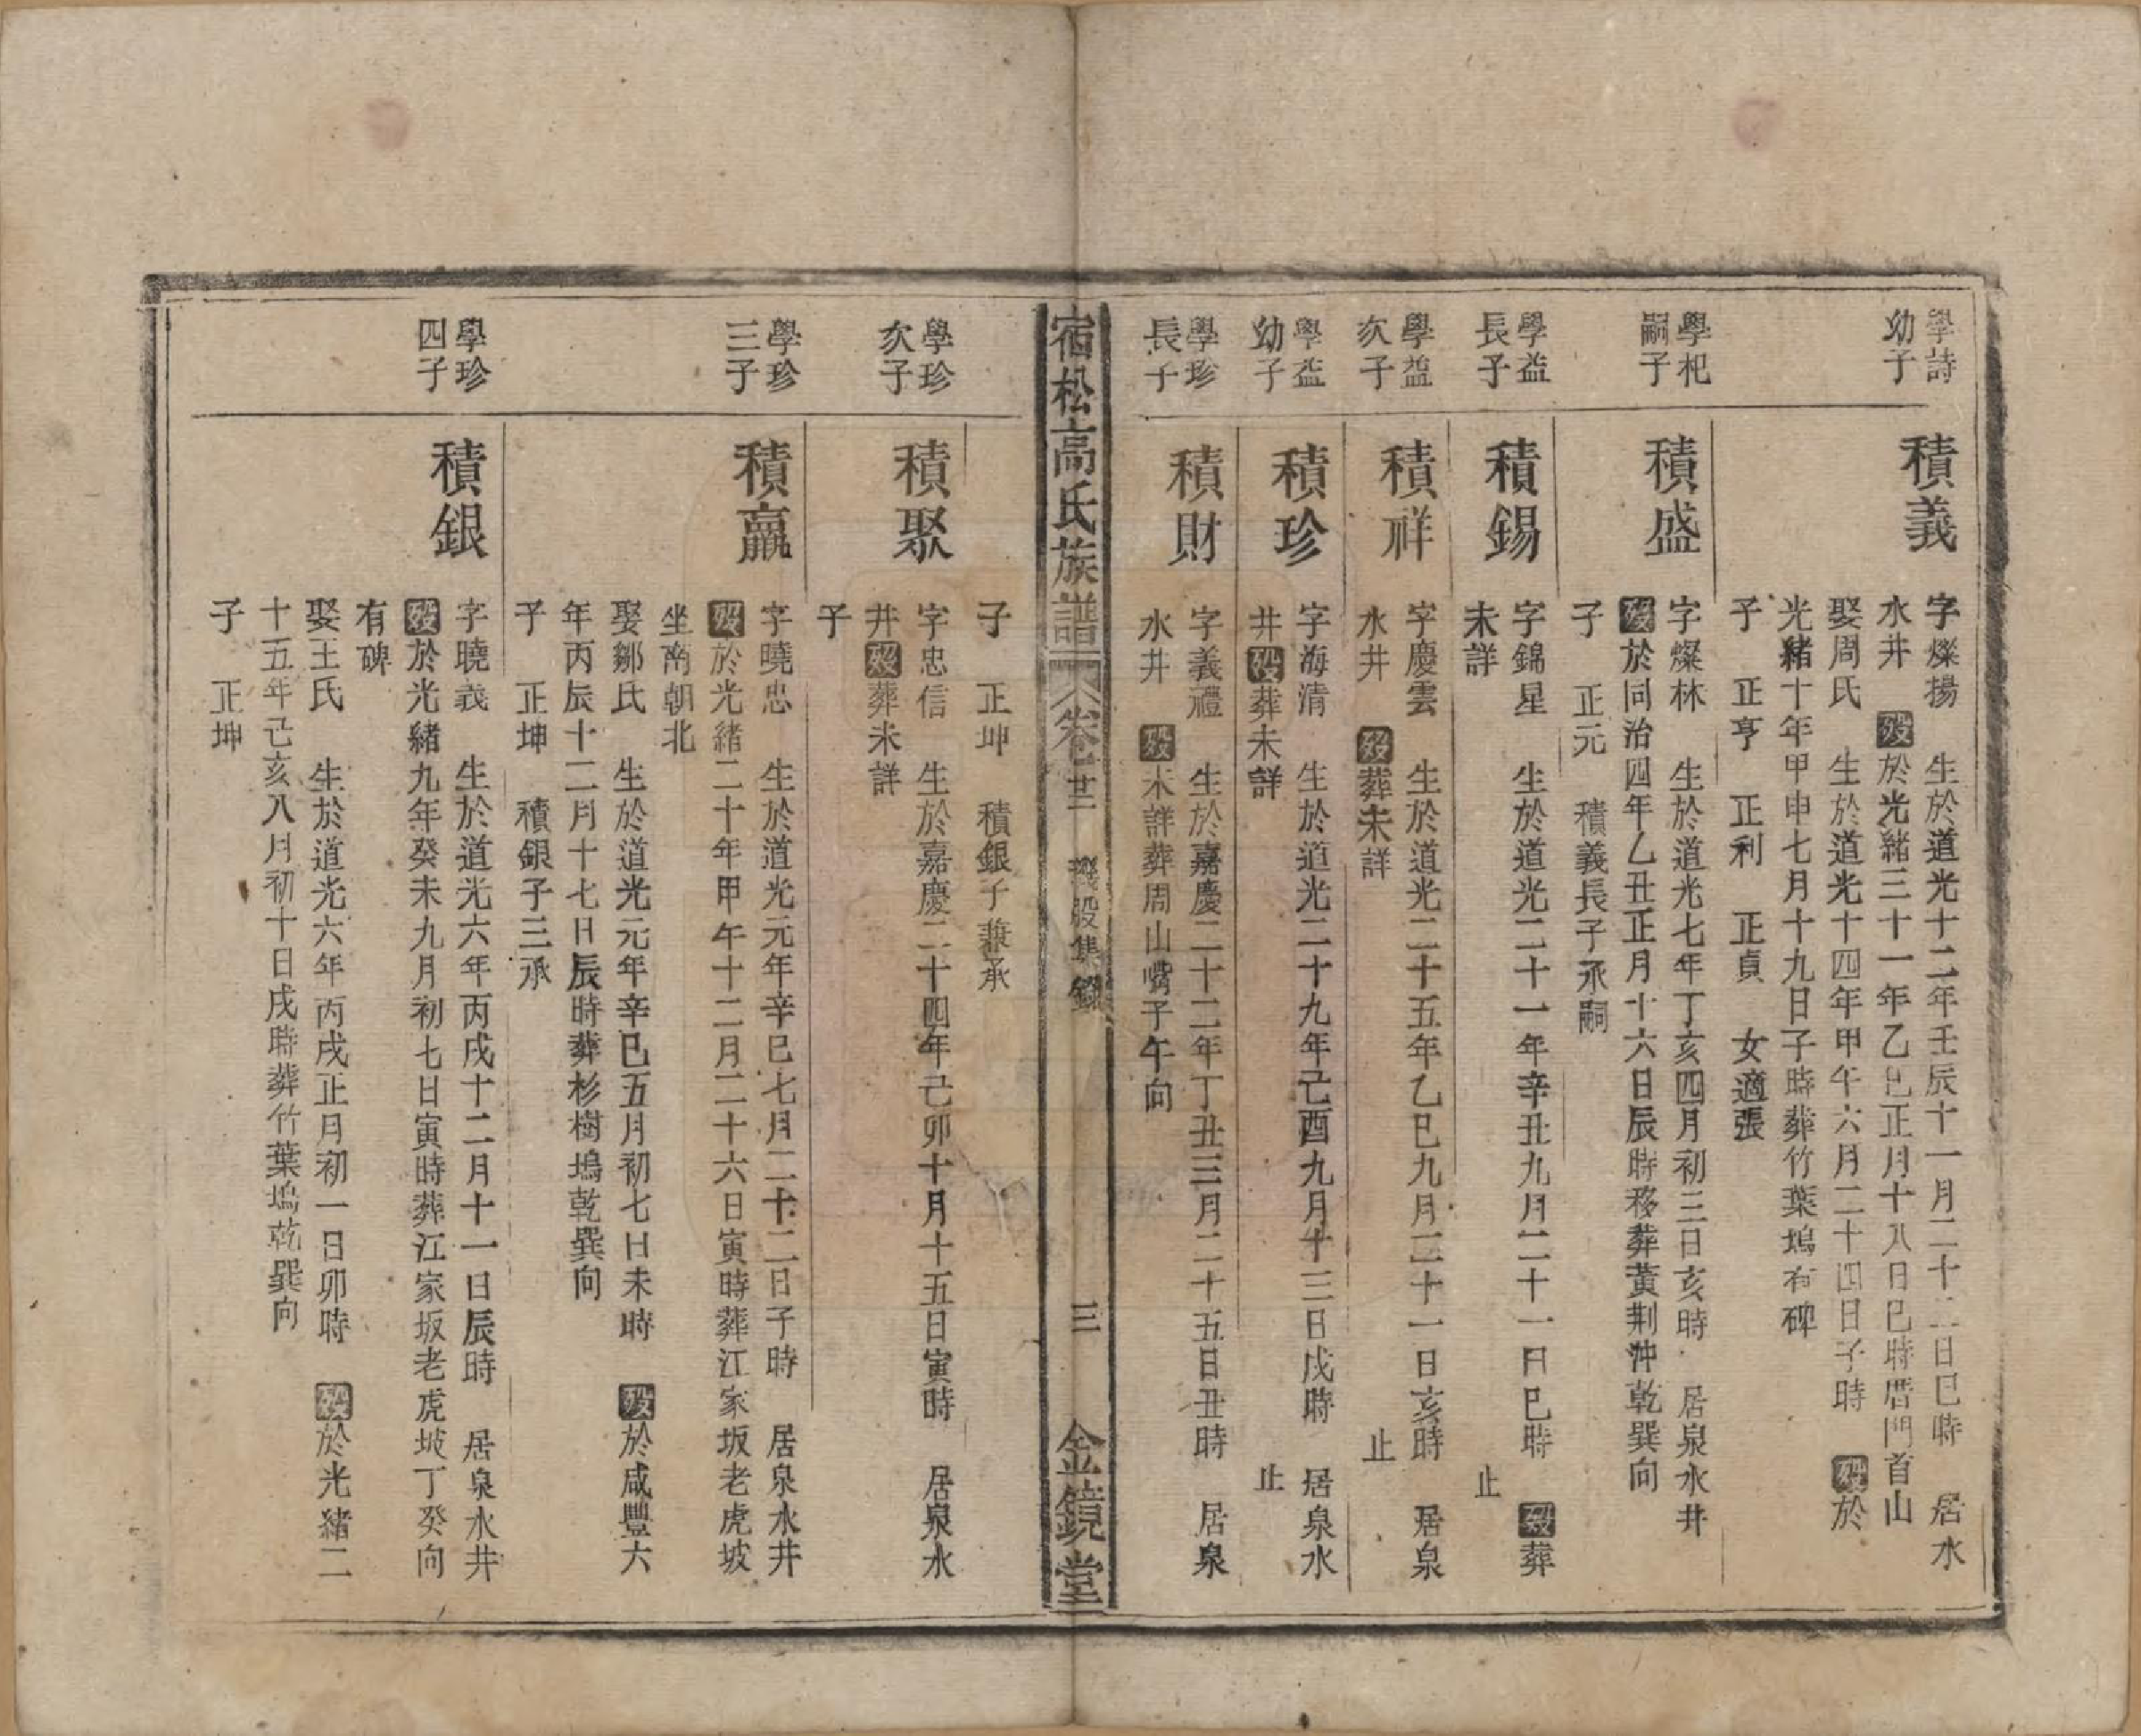 學詩
幼子
積義
字燦揚　生於道光十二年壬辰十一月二十二日巳時　居水
水井　歿於光緒三十一年乙巳正月十八日巳時厝門首山
娶周氏　生於道光十四年甲午六月二十四日子時　歿於
光緒十年甲申七月十九日子時葬竹葉塢有碑
子　正亨　正利　正貞　女適張
學杞
嗣子
積盛
字燦林　生於道光七年丁亥四月初三日亥時　居泉水井
歿於同治四年乙丑正月十六日辰時移葬黃荆沖乾巽向
子　正元　積義長子承嗣
學益
長子
積錫
字錦星　生於道光二十一年辛丑九月二十一日巳時　歿葬
未詳　止
學益
次子
積祥
字慶雲　生於道光二十五年乙巳九月二十一日亥時　居泉
水井　歿葬未詳　止
學益
幼子
積珍
字海清　生於道光二十九年己酉九月十三日戌時　居泉水
井歿葬未詳　止
學珍
長子
積財
字義禮　生於嘉慶二十二年丁丑三月二十五日丑時　居泉
水井　歿未詳葬周山嘴子午向
宿松高氏族譜　卷廿二　璣股集錄　三　金鏡堂
子　正坤　積銀子兼承
學珍
次子
積聚
字忠信　生於嘉慶二十四年己卯十月十五日寅時　居泉水
井歿葬未詳
子
學珍
三子
積贏
字曉忠　生於道光元年辛巳七月二十二日子時　居泉水井
歿於光緒二十年甲午十二月二十六日寅時葬江家坂老虎坡
坐南朝北
娶鄒氏　生於道光元年辛巳五月初七日未時　歿於咸豐六
年丙辰十二月十七日辰時葬杉樹塢乾巽向
子　正坤　積銀子三承
學珍
四子
積銀
字曉義　生於道光六年丙戌十二月十一日辰時　居泉水井
歿於光緒九年癸未九月初七日寅時葬江家坂老虎坡丁癸向
有碑
娶王氏　生於道光六年丙戌正月初一日卯時　歿於光緒二
十五年己亥八月初十日戌時葬竹葉塢乾巽向
子　正坤